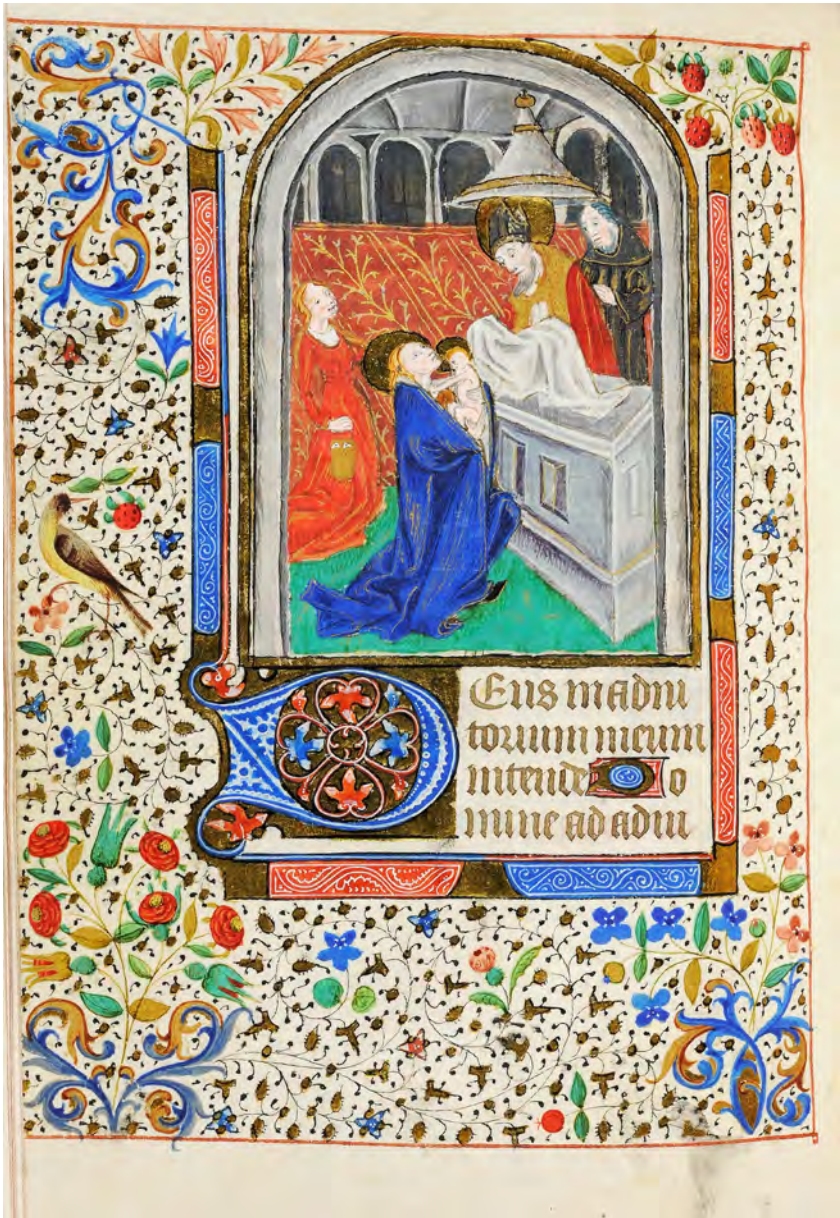 DEus in adiu
torium meum
intende Do
mine ad adiu